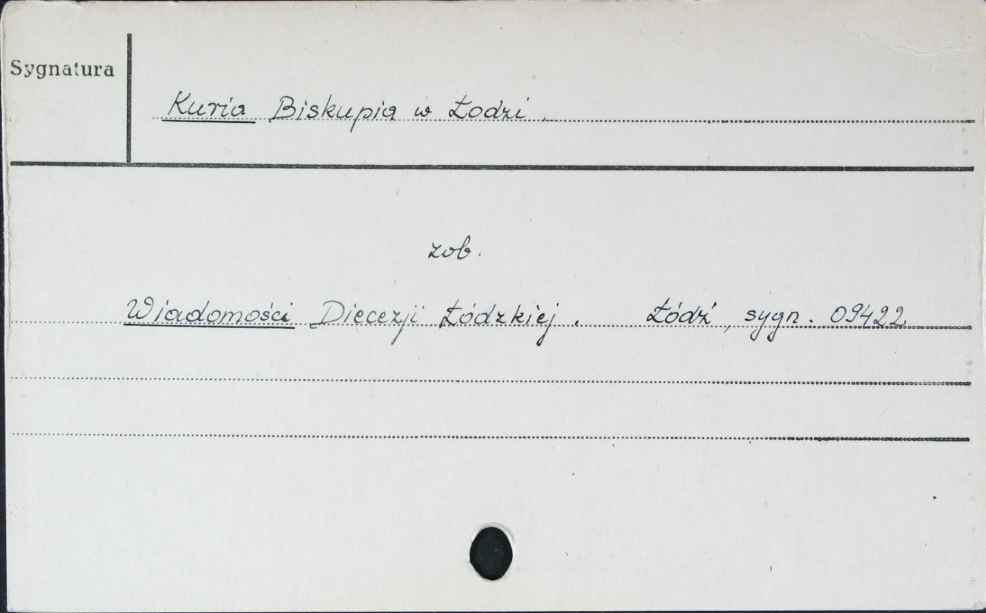 Sygnatura
Kuria Biskupia w Łodzi.
zob.
Wiadomości Diecezji Łódzkiej. Łódź, sygn. 09422